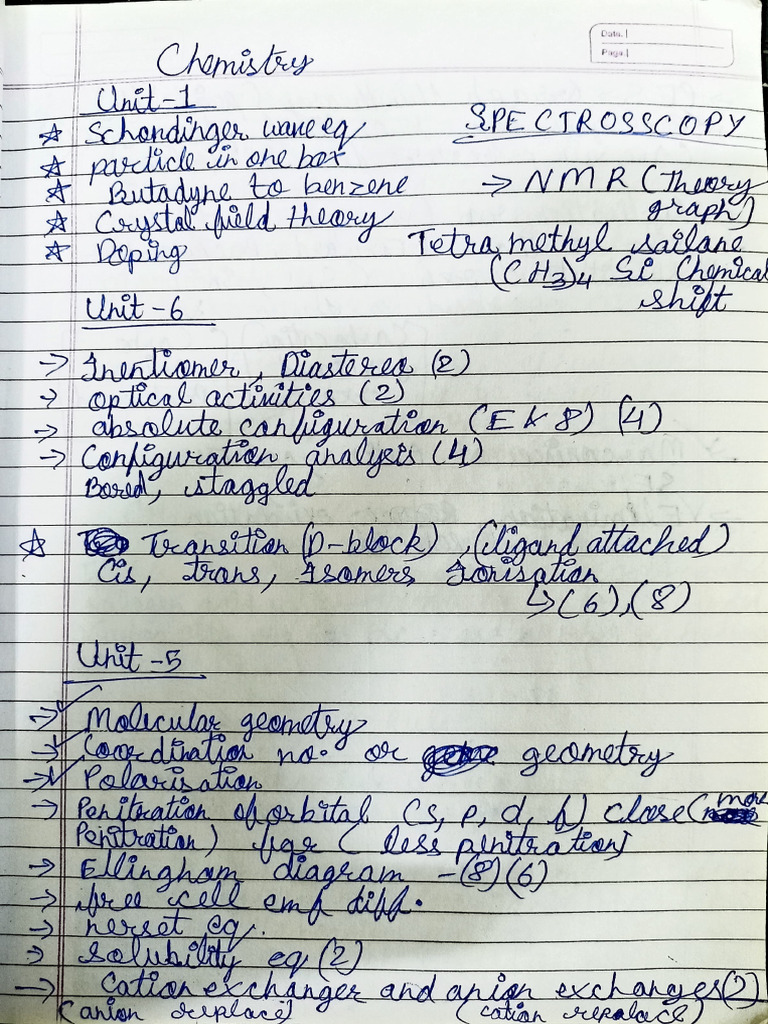 Date.
Page.
Chemistry
Unit-1
☆ Schondinger wave eq
☆ particle in one box
☆ Butadyne to benzene
☆ Crystal field theory
☆ Doping
SPECTROSSCOPY
→ NMR (Theory
graph)
Tetra methyl sailane
(CH3)4 Si Chemical
shift
Unit -6
→ Inentiomer, Diasterea (2)
→ optical activities (2)
→ absolute configuration (E & 8) (4)
→ Configuration analysis (4)
Bored, staggled
☆ Transition (D-block), (ligand attached)
Cis, trans, Isomers Ionisation
↳ (6), (8)
Unit -5
→ Molecular geometry
→ Coordination no. or geometry
→ Polarisation
→ Penitration of orbital (s, p, d, f) close (more
Penitration) far (less penitration)
→ Ellingham diagram - (8) (6)
→ free cell emf diff.
→ nerset eq.
→ solubility eq (2)
→ Cation exchanger and anion exchanger (2)
(anion replace) (cation repalace)